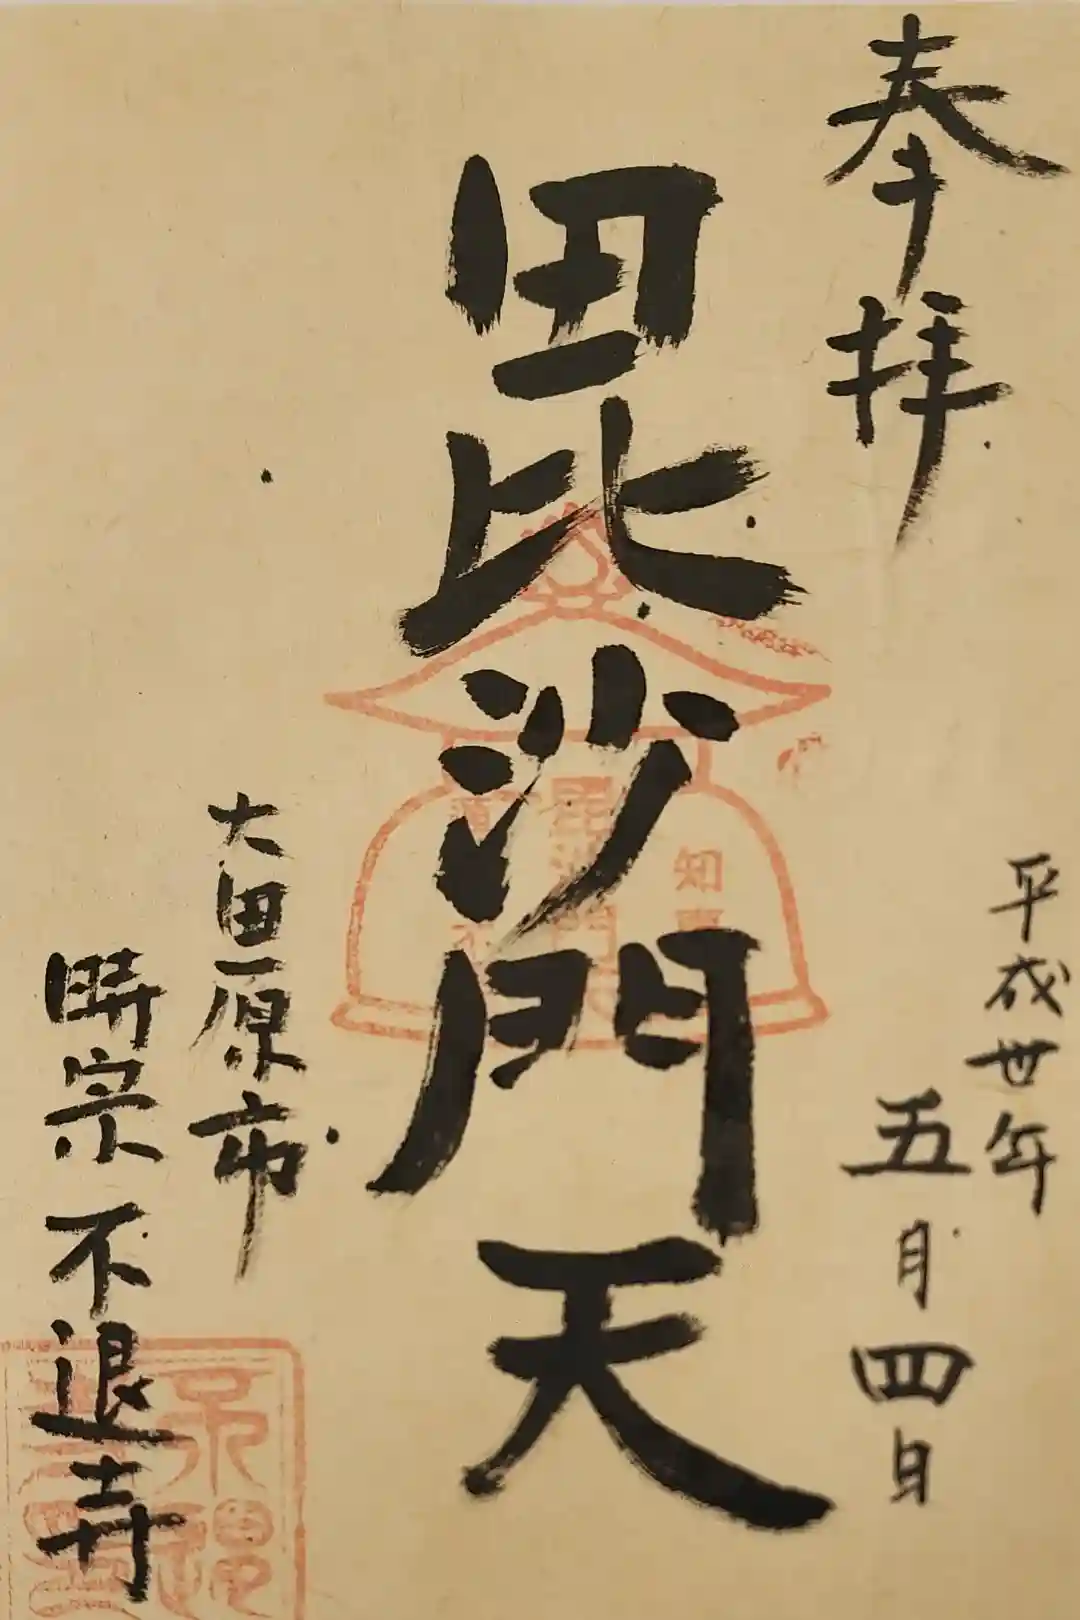 奉拝
平成丗年
五月四日
毘沙門天
知事
大田原市
時宗不退寺